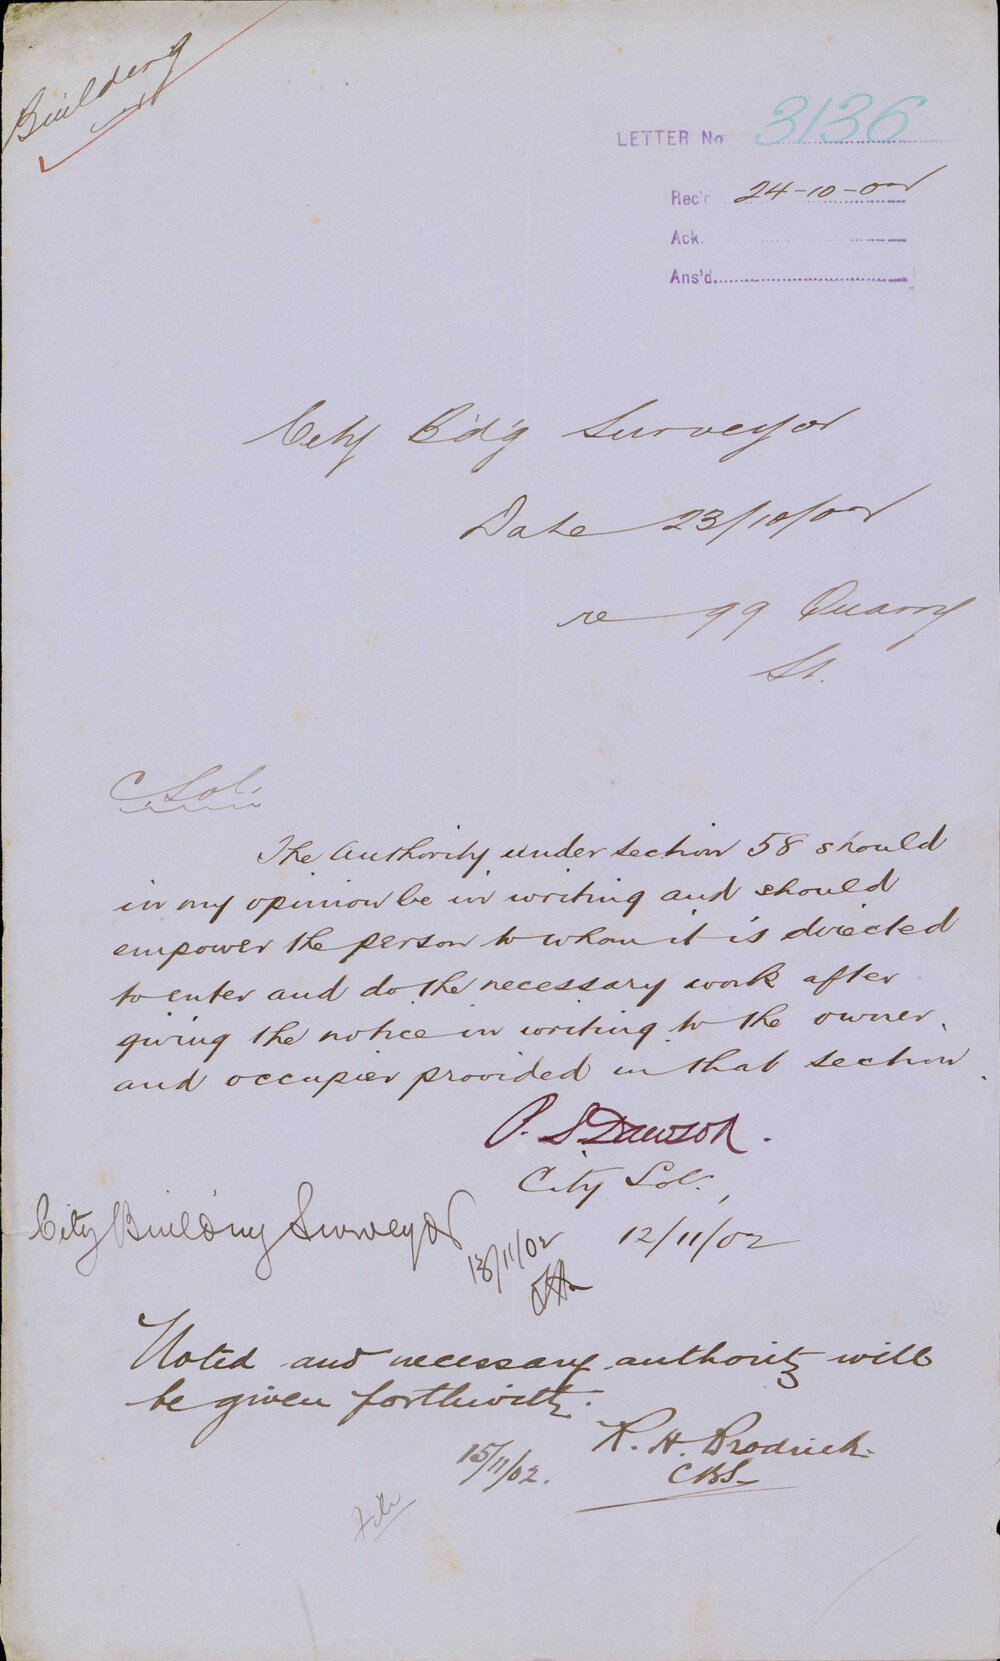 Building
LETTER No 3136
Rec'd 24-10-02
Ack.
Ans'd.
City B'd'g Surveyor
Date 23/10/02
re 99 Quarry
St.
C Sol.
The Authority under section 58 should
in my opinion be in writing and should
empower the person to whom it is directed
to enter and do the necessary work after
giving the notice in writing to the owner
and occupier provided in that section.
City Sol.,
12/11/02
City Building Surveyor
13/11/02
Noted and necessary authority will
be given forthwith.
R. H. Brodrick
CBS
15/11/02.